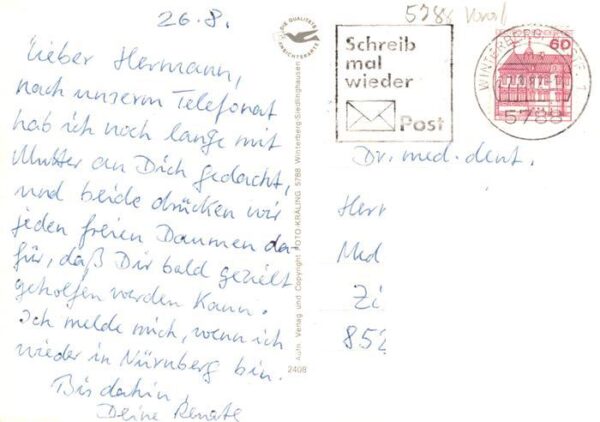 26.8.
Lieber Hermann,
nach unserem Telefonat
hab ich noch lange mit
Mutter an Dich gedacht,
und beide drücken wir
jeden freien Daumen da-
für, daß Dir bald gezielt
geholfen werden kann.
Ich melde mich, wenn ich
wieder in Nürnberg bin.
Bis dahin,
Deine Renate
DIE QUALITÄTS
ANSICHTSKARTE
Aufn. Verlag und Copyright FOTO-KRALING 5788 Winterberg-Siedlinghausen
2408
5788
Schreib
mal
wieder
Post
WINTERBERG
1
5788
60
Dr. med. dent.
Herr
Med
Zi
852